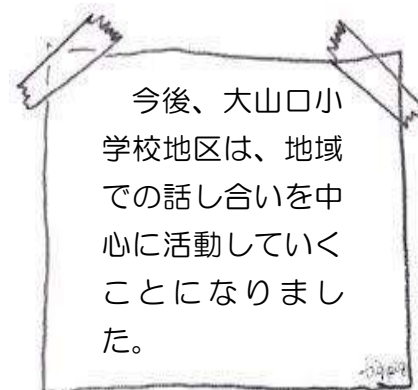 今後、大山口小
学校地区は、地域
での話し合いを中
心に活動していく
ことになりまし
た。